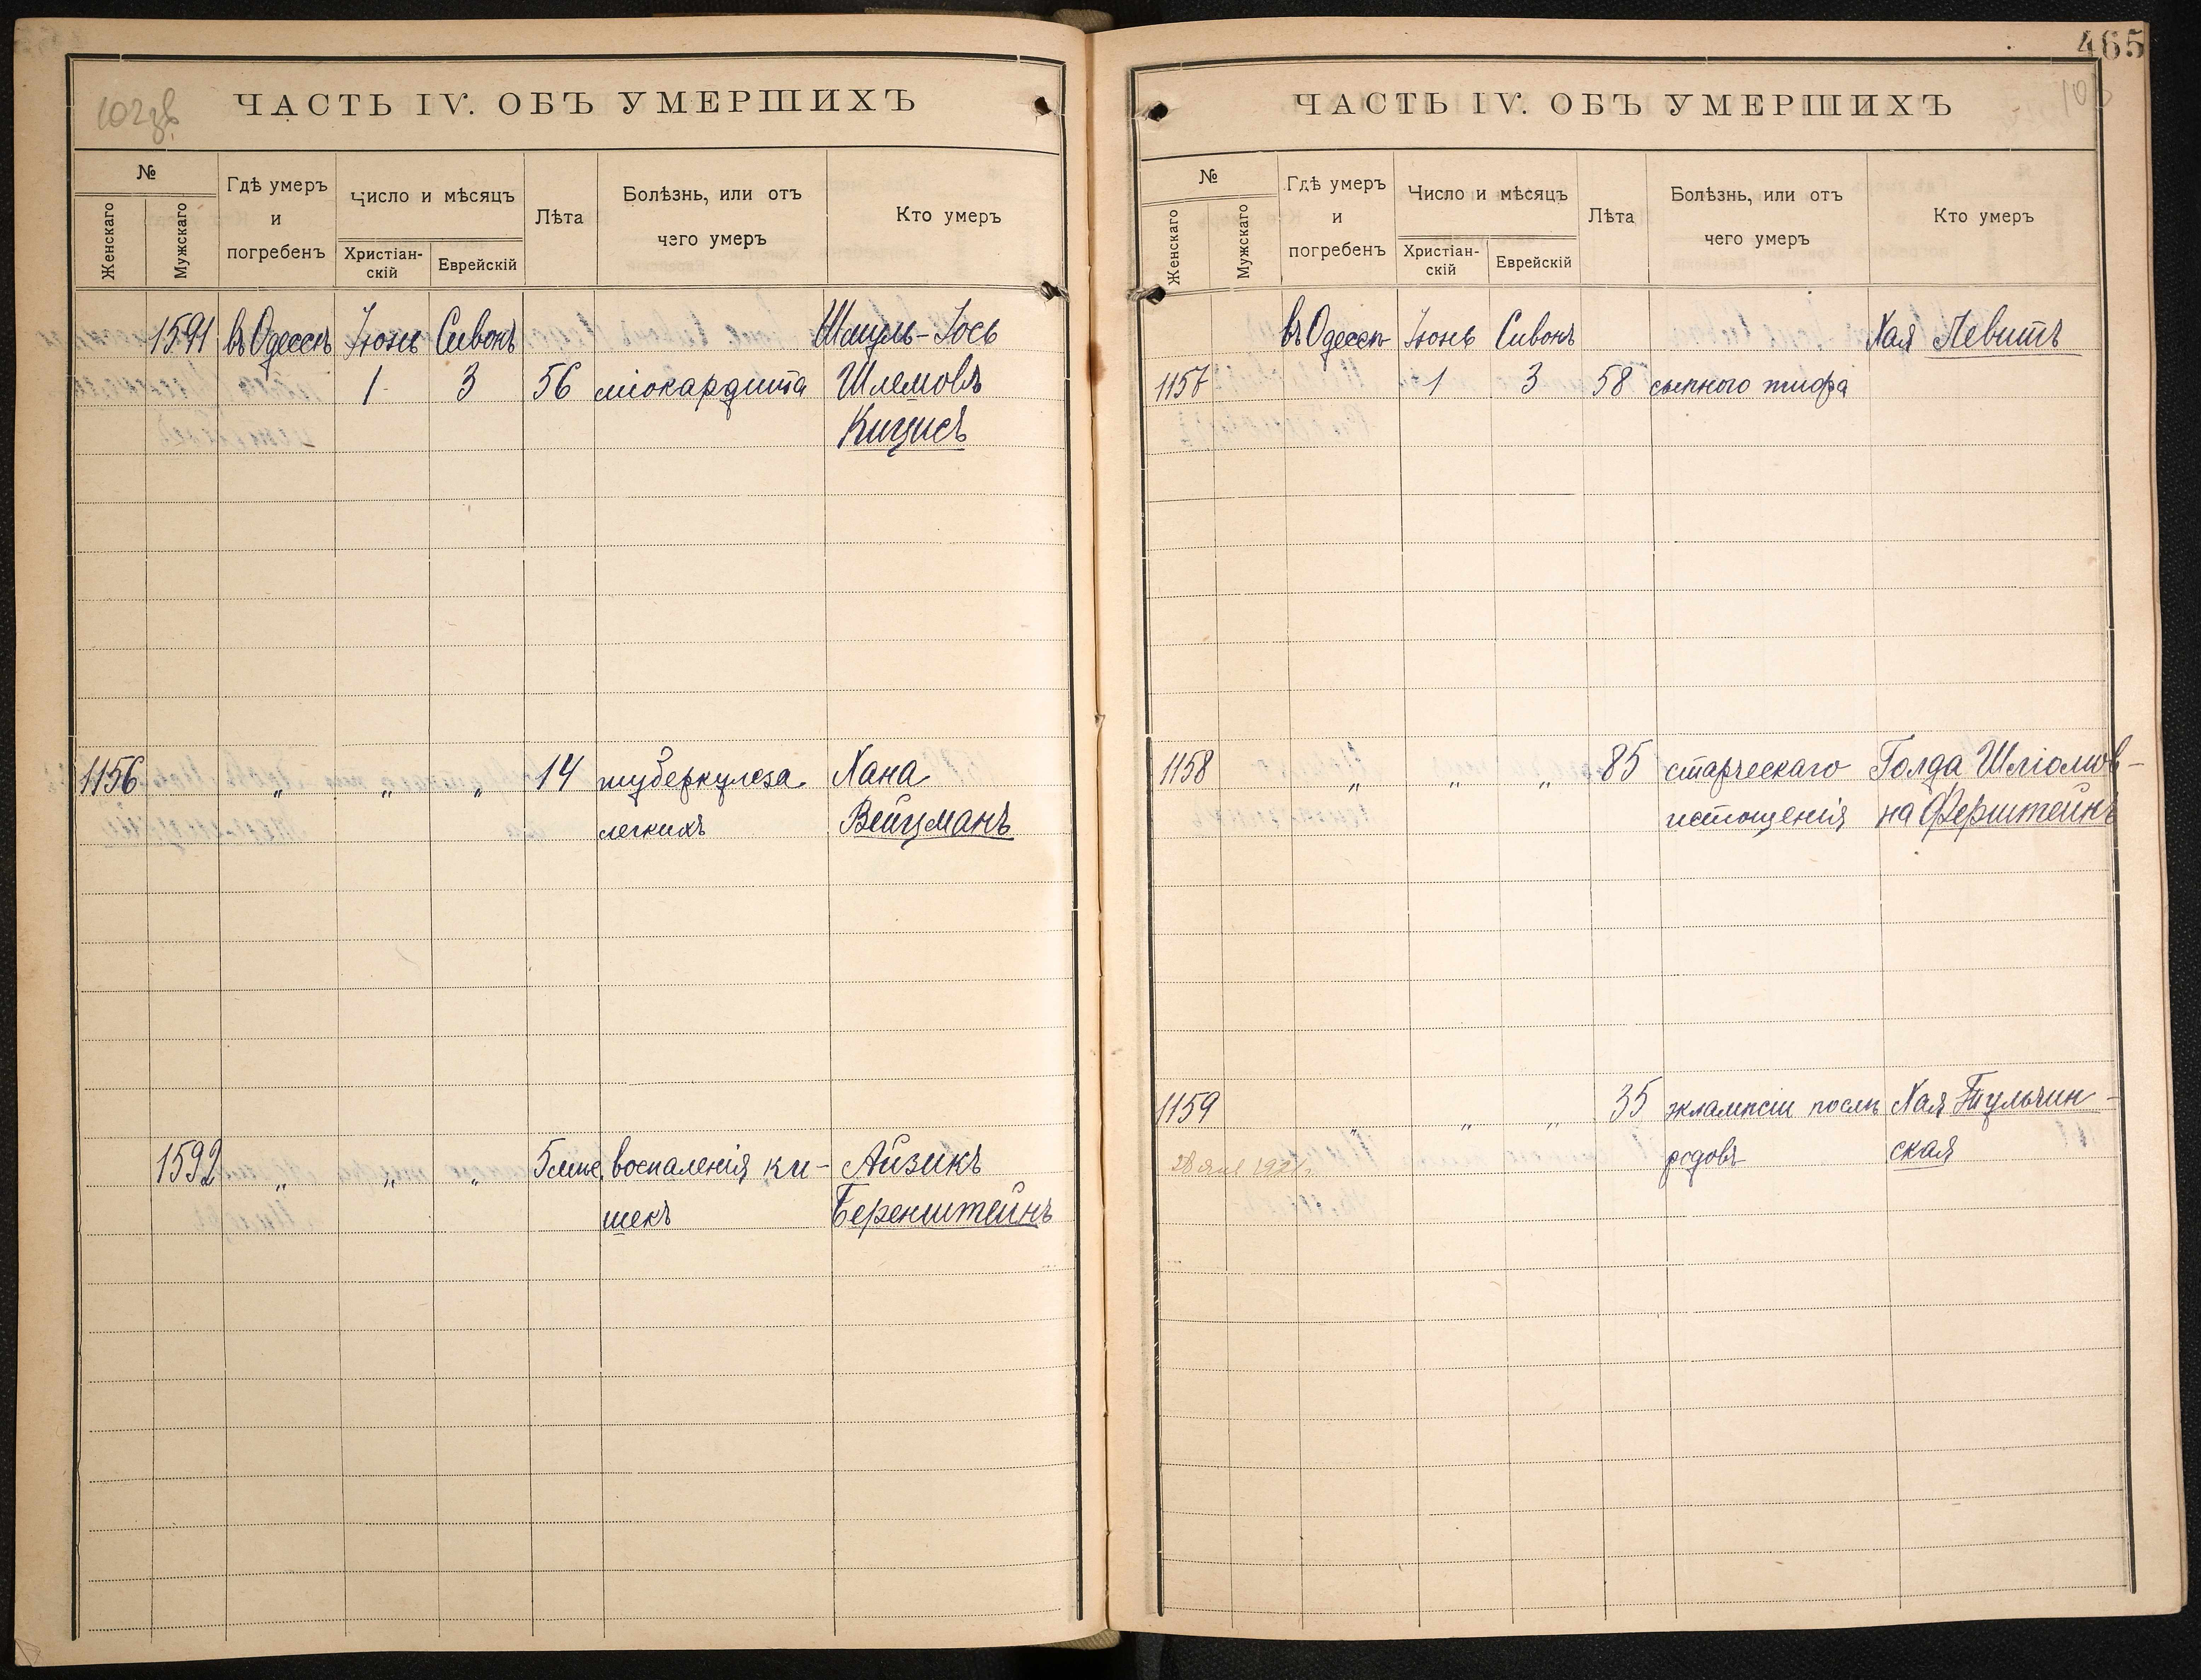 465
ЧАСТЬ IV. ОБЪ УМЕРШИХЪ
№
Женскаго
Мужскаго
Гдѣ умеръ
и
погребенъ
Число и мѣсяцъ
Христіан-
скій
Еврейскій
Лѣта
Болѣзнь, или отъ
чего умеръ
Кто умеръ
1591 въ Одессѣ Іюнь Сивонъ Шмуль-Іось
1 3 56 міокардита Шлемовъ
Кицисъ
1156 „ „ „ 14 туберкулеза Хана
легкихъ Вейцманъ
1592 „ „ „ 5 мѣс. воспаленія ки- Айзикъ
шекъ Беренштейнъ
ЧАСТЬ IV. ОБЪ УМЕРШИХЪ
№
Женскаго
Мужскаго
Гдѣ умеръ
и
погребенъ
Число и мѣсяцъ
Христіан-
скій
Еврейскій
Лѣта
Болѣзнь, или отъ
чего умеръ
Кто умеръ
въ Одессѣ Іюнь Сивонъ Хая Левитъ
1157 1 3 58 сыпного тифа
1158 „ „ „ 85 старческаго Голда Шліомов-
истощенія на Ферштейнъ
1159 „ „ „ 35 эклампсіи послѣ Хая Тульчин-
родовъ ская